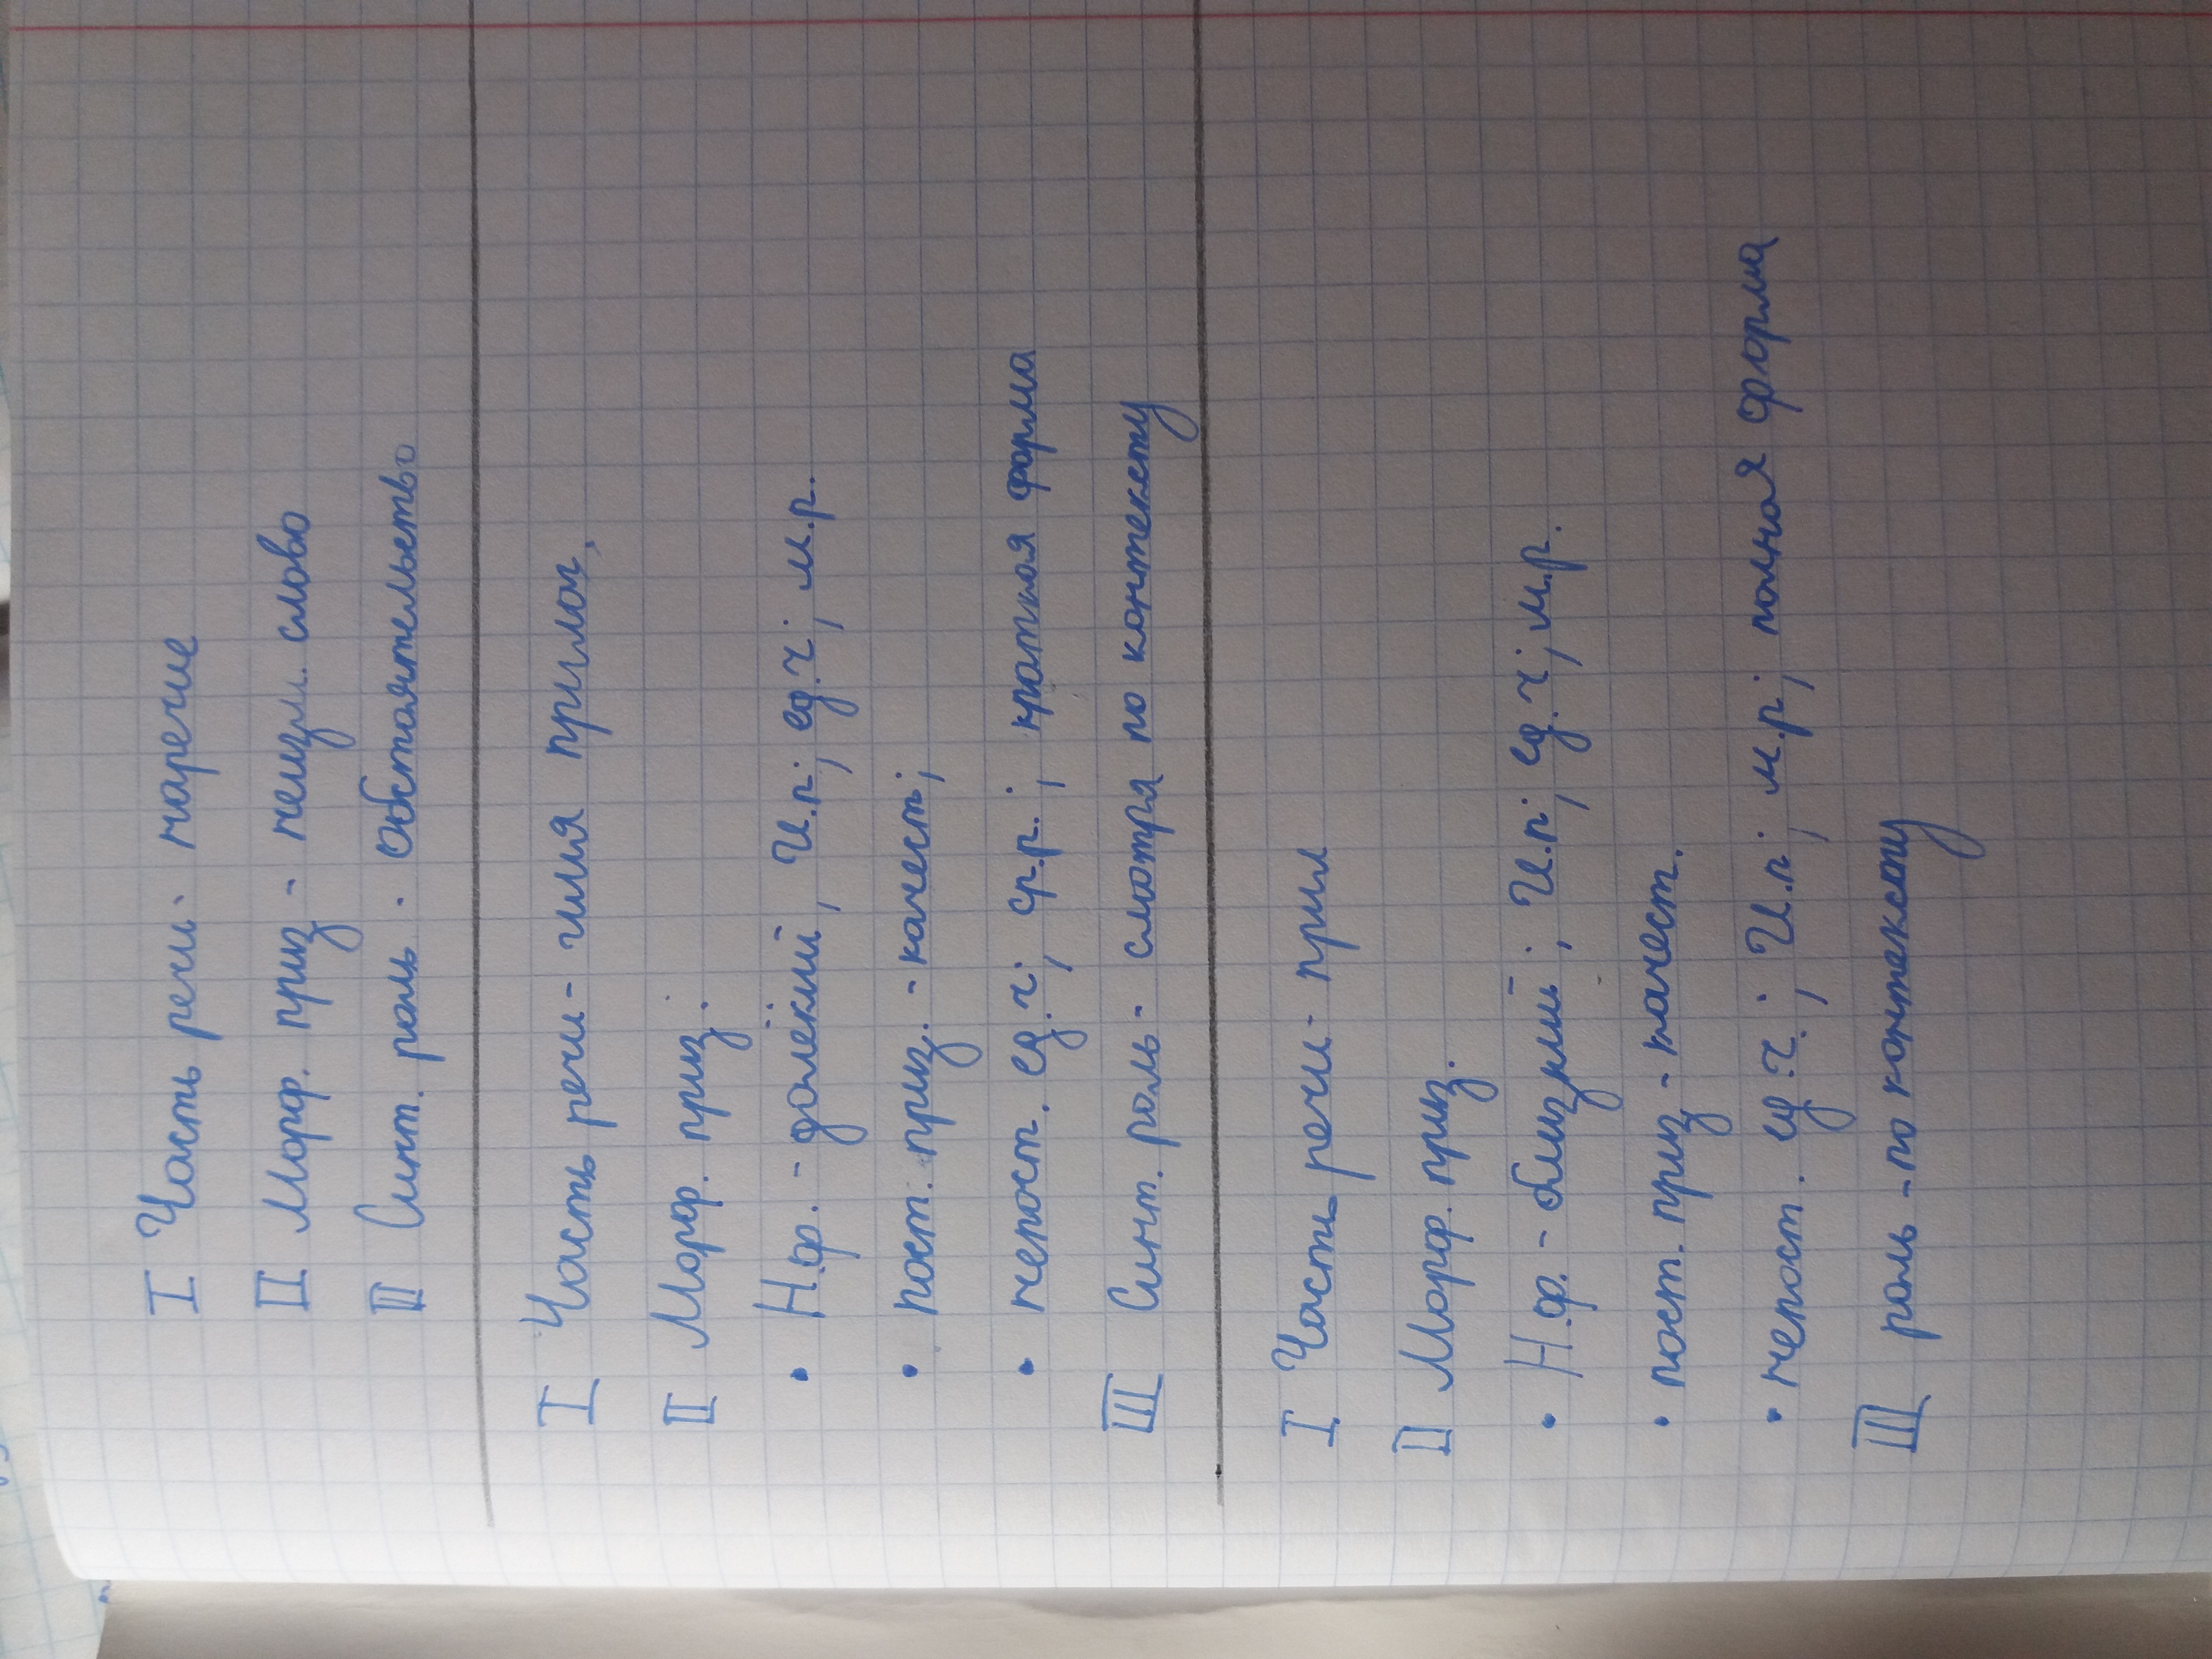 I Часть речи - наречие
II Морф. приз - неизм. слово
III Синт. роль - Обстоятельство
I Часть речи - имя прилог,
II Морф. приз.
• Н.ф. - далёкий, И.п; ед.ч; м.р.
• пост. приз. - качест;
• непост. ед.ч; ср.р.; краткая форма
III Синт. роль - смотря по контексту
I Часть речи - прил
II Морф. приз.
• Н.ф. - близкий; И.п; ед.ч; м.р.
• пост. приз - качест.
• непост. ед.ч.; И.п; м.р; полная форма
III роль - по контексту